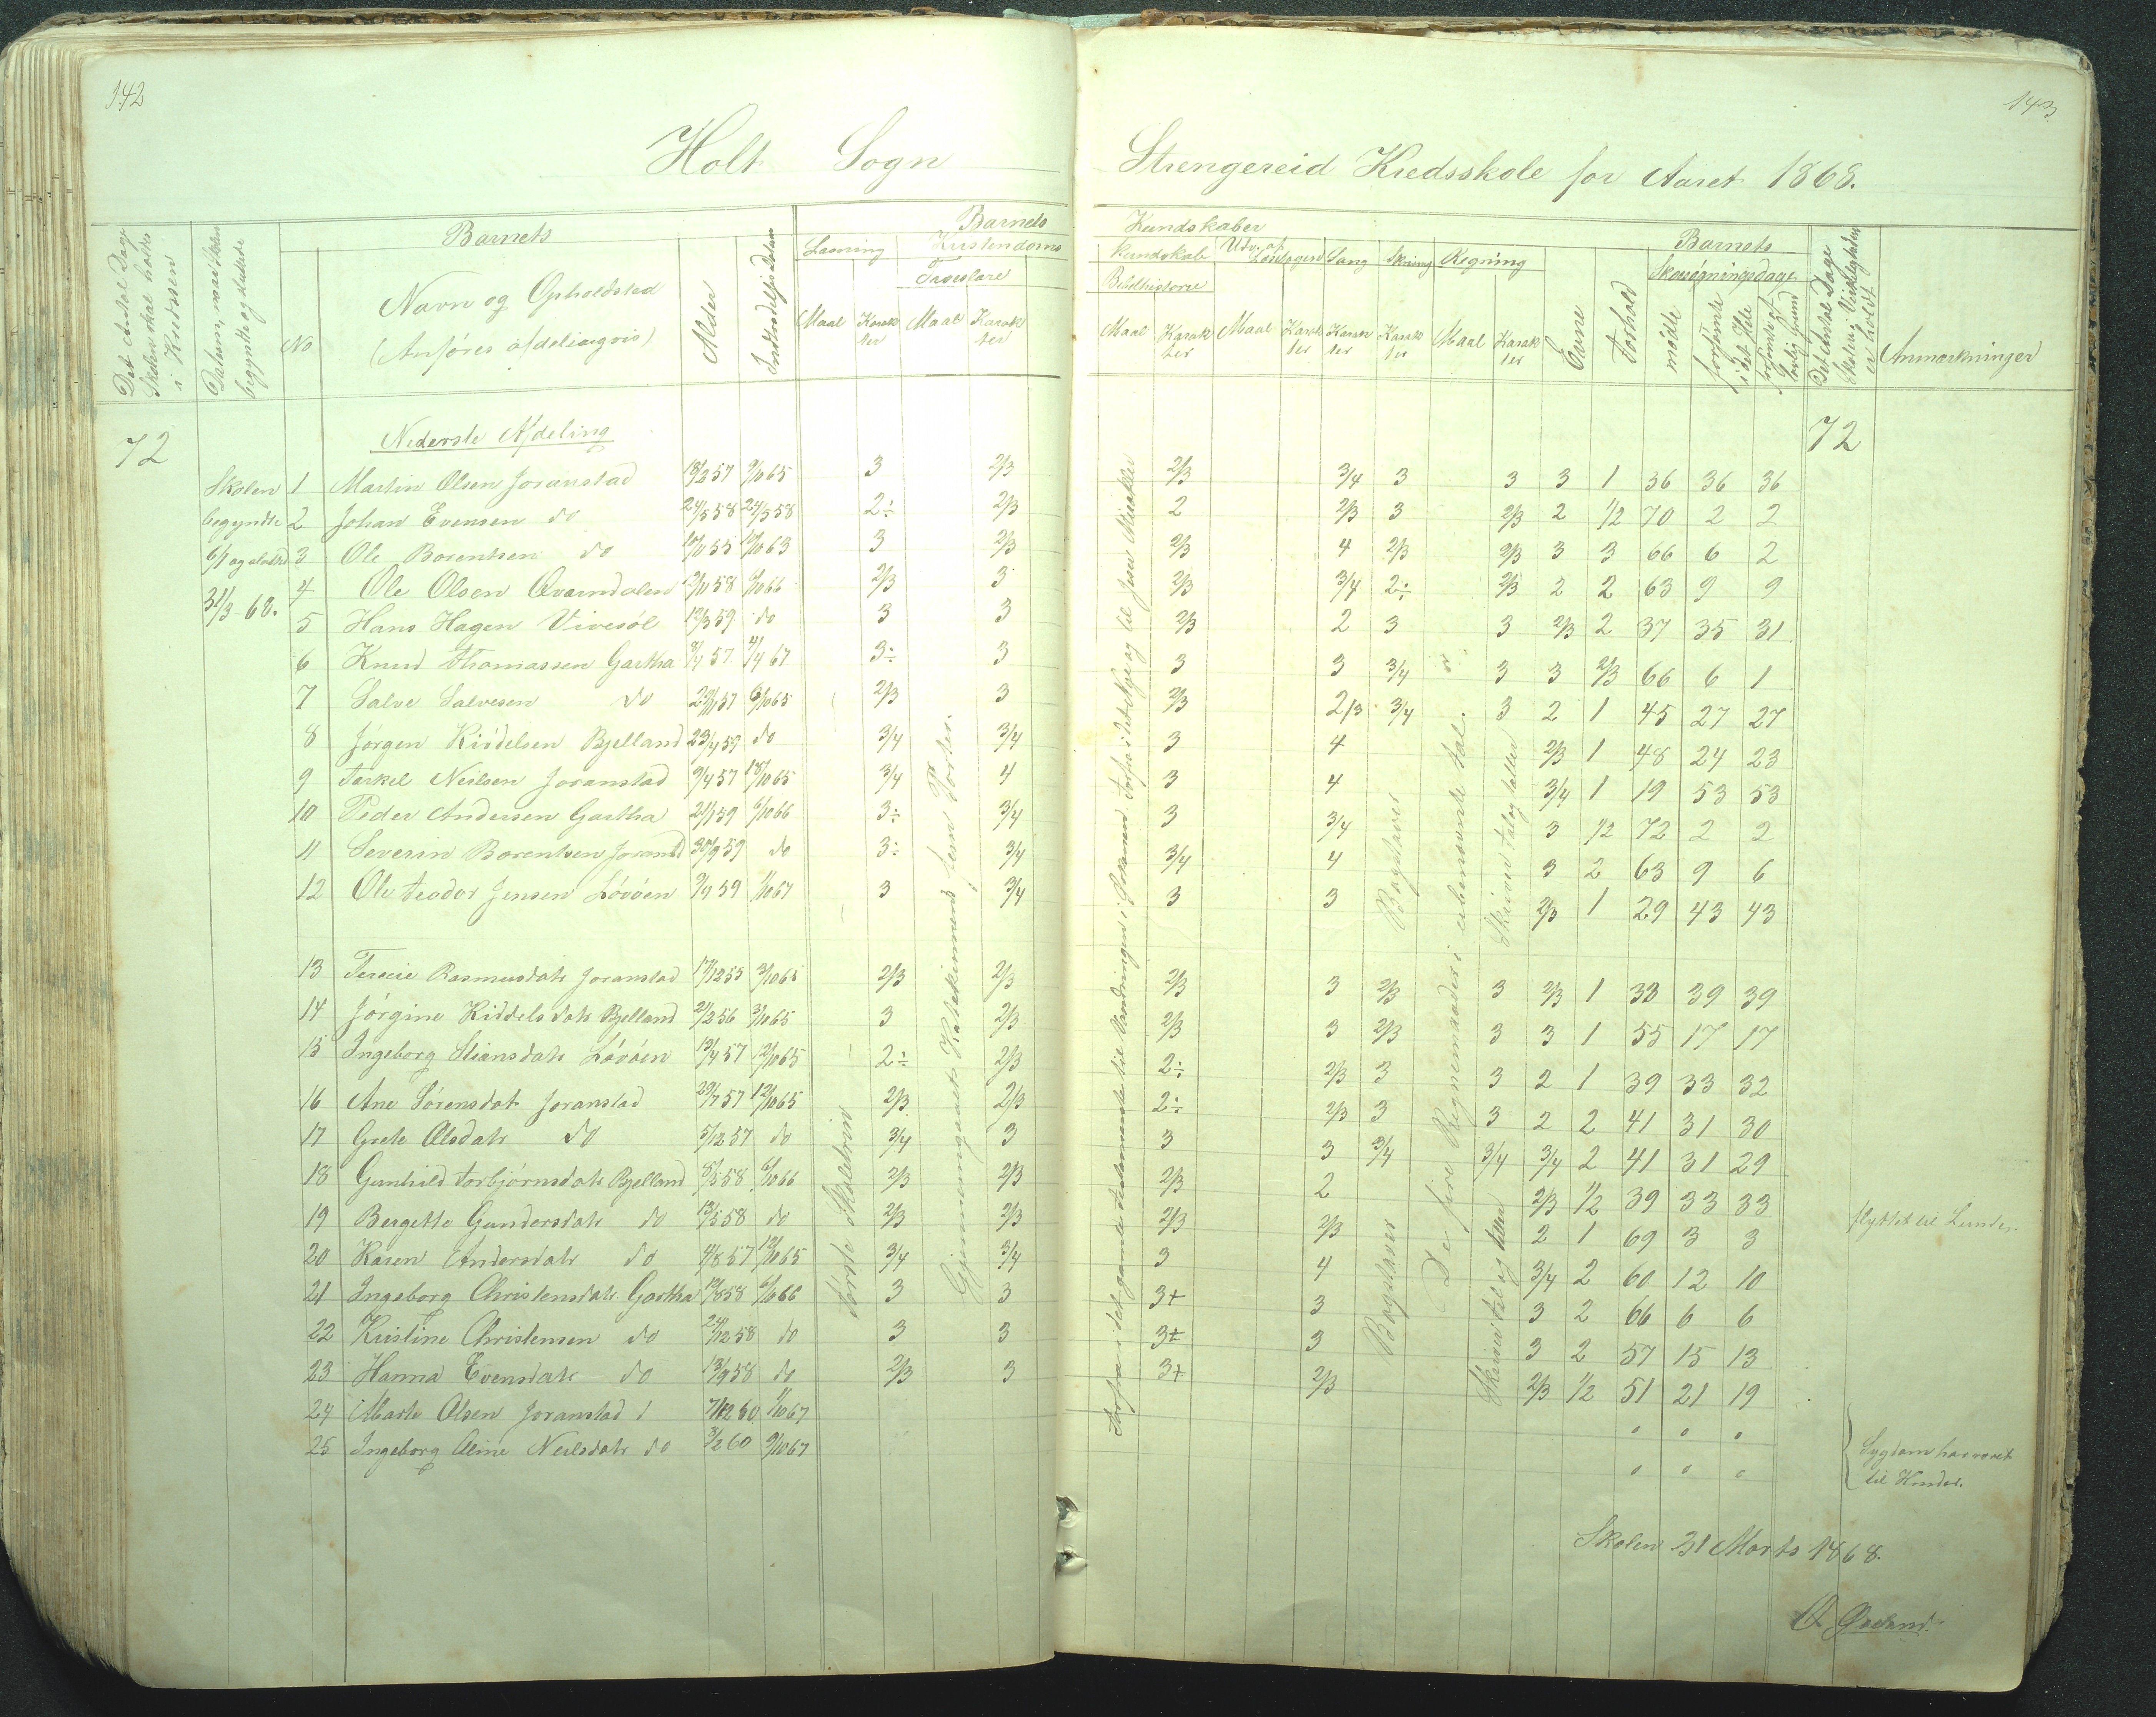 142
143
Holt Sogn
Strengereid Kredsskole for Aaret 1868.
Det Antal Dage Skolen skal holdes i Kredsen
Datum, naar Skolen begyndte og sluttede
No
Barnets
Navn og Opholdsted
(Anføres afdelingvis)
Alder
Indtrædelsesdatum
Barnets
Læsning
Kristendoms
Troeslære
Maal Karakter Maal Karakter
Kundskaber
kundskab Udv. af Læsebogen Sang Skrivning Regning
Bibelhistorie
Maal Karakter Maal Karakter Karakter Karakter Maal Karakter
Evne
Forhold
Barnets
Skolesøgningsdage
mødte
forsømte i det Hele
forsømte af lovlig Grund
Det Antal Dage Skolen i Virkeligheden er holdt
Anmærkninger
72
Nederste Afdeling
72
Skolen begyndte 6/1 og sluttede 31/3 68.
1 Martin Olsen Joranstad 18/2 57 9/10 65 3 2/3 2/3 3/4 3 3 3 1 36 36 36
2 Johan Evensen do 24/5 58 24/5 58 2÷ 2/3 2 2/3 3 2/3 2 1/2 70 2 2
3 Ole Borentsen do 3 2/3 2/3 4 2/3 2/3 3 3 66 6 2
4 Ole Olsen Qvarndalen 6/10 66 2/3 3 2/3 3/4 2÷ 2/3 2 2 63 9 9
5 Hans Hagen Vivesöl 12/3 59 do 3 3 2/3 2 3 3 2/3 2 37 35 31
6 Knud Thomassen Gartha 4/4 67 3÷ 3 3 3 3/4 3 3 2/3 66 6 1
7 Salve Salvesen do 6/10 65 2/3 3 2/3 2/3 3/4 3 2 1 45 27 27
8 Jørgen Kiddelsen Bjelland 23/4 59 do 3/4 3/4 3 4 2/3 1 48 24 23
9 Terkel Neilsen Joranstad 9/4 57 18/10 65 3/4 4 3 4 3/4 1 19 53 53
10 Peder Andersen Gartha 21/1 59 6/10 66 3÷ 3/4 3 3/4 3 1/2 72 2 2
11 Severin Borentsen Joranstd 30/9 59 do 3÷ 3/4 3/4 4 3 2 63 9 6
12 Ole Teodor Jensen Løvøen 1/10 67 3 3/4 3 3 2/3 1 29 43 43
13 Terecie Rasmusdatr Joranstad 17/12 55 3/10 65 2/3 2/3 2/3 3 2/3 3 2/3 1 33 39 39
14 Jørgine Kiddelsdatr Bjelland 24/2 56 3/10 65 3 2/3 2/3 3 2/3 3 3 1 55 17 17
15 Ingeborg Stiansdatr Løvøen 13/4 57 12/10 65 2÷ 2/3 2÷ 2/3 3 3 2 1 39 33 32
16 Ane Sørensdatr Joranstad 29/7 57 12/10 65 2/3 2/3 2÷ 2/3 3 3 2 2 41 31 30
17 Grete Olsdatr do 5/12 57 do 3/4 3 3 3 3/4 3/4 3/4 2 41 31 29
18 Gunhild Torbjørnsdatr Bjelland 8/5 58 6/10 66 2/3 2/3 2/3 2 2/3 1/2 39 33 33
19 Bergitte Gundersdatr do 13/5 58 do 2/3 2/3 2/3 2/3 2 1 69 3 3 flyttet til Lunden
20 Karen Andersdatr do 4/8 57 12/10 65 3/4 3/4 3 4 3/4 2 60 12 10
21 Ingeborg Christensdatr Gartha 19/8 58 6/10 66 3 3 3+ 3 3 2 66 6 6
22 Kristine Christensen do 24/12 58 do 3 3 3+ 3 3 2 57 15 13
23 Hanna Evensdatr do 13/9 58 do 2/3 3 3+ 2/3 2/3 1/2 51 21 19
24 Marte Olsen Joranstad 7/12 60 1/10 67 0 0 0
25 Ingeborg Oline Neilsdatr do 3/2 60 9/10 67 0 0 0
Sygdom har været til Hinder.
Første Skoletrin
Gjennemgaaet Katekismens fem Parter.
Forfra i det gamle Testamente til Vandringen i Ørkenen. Forfra i det Nye og til Jesu Mirakler
Bogstaver
Bogstaver
De fire Regnemaader i ubenævnte Tal.
Skriver Tal og tæller
Skriver Tal og tæller
Skolen 31 Marts 1868.